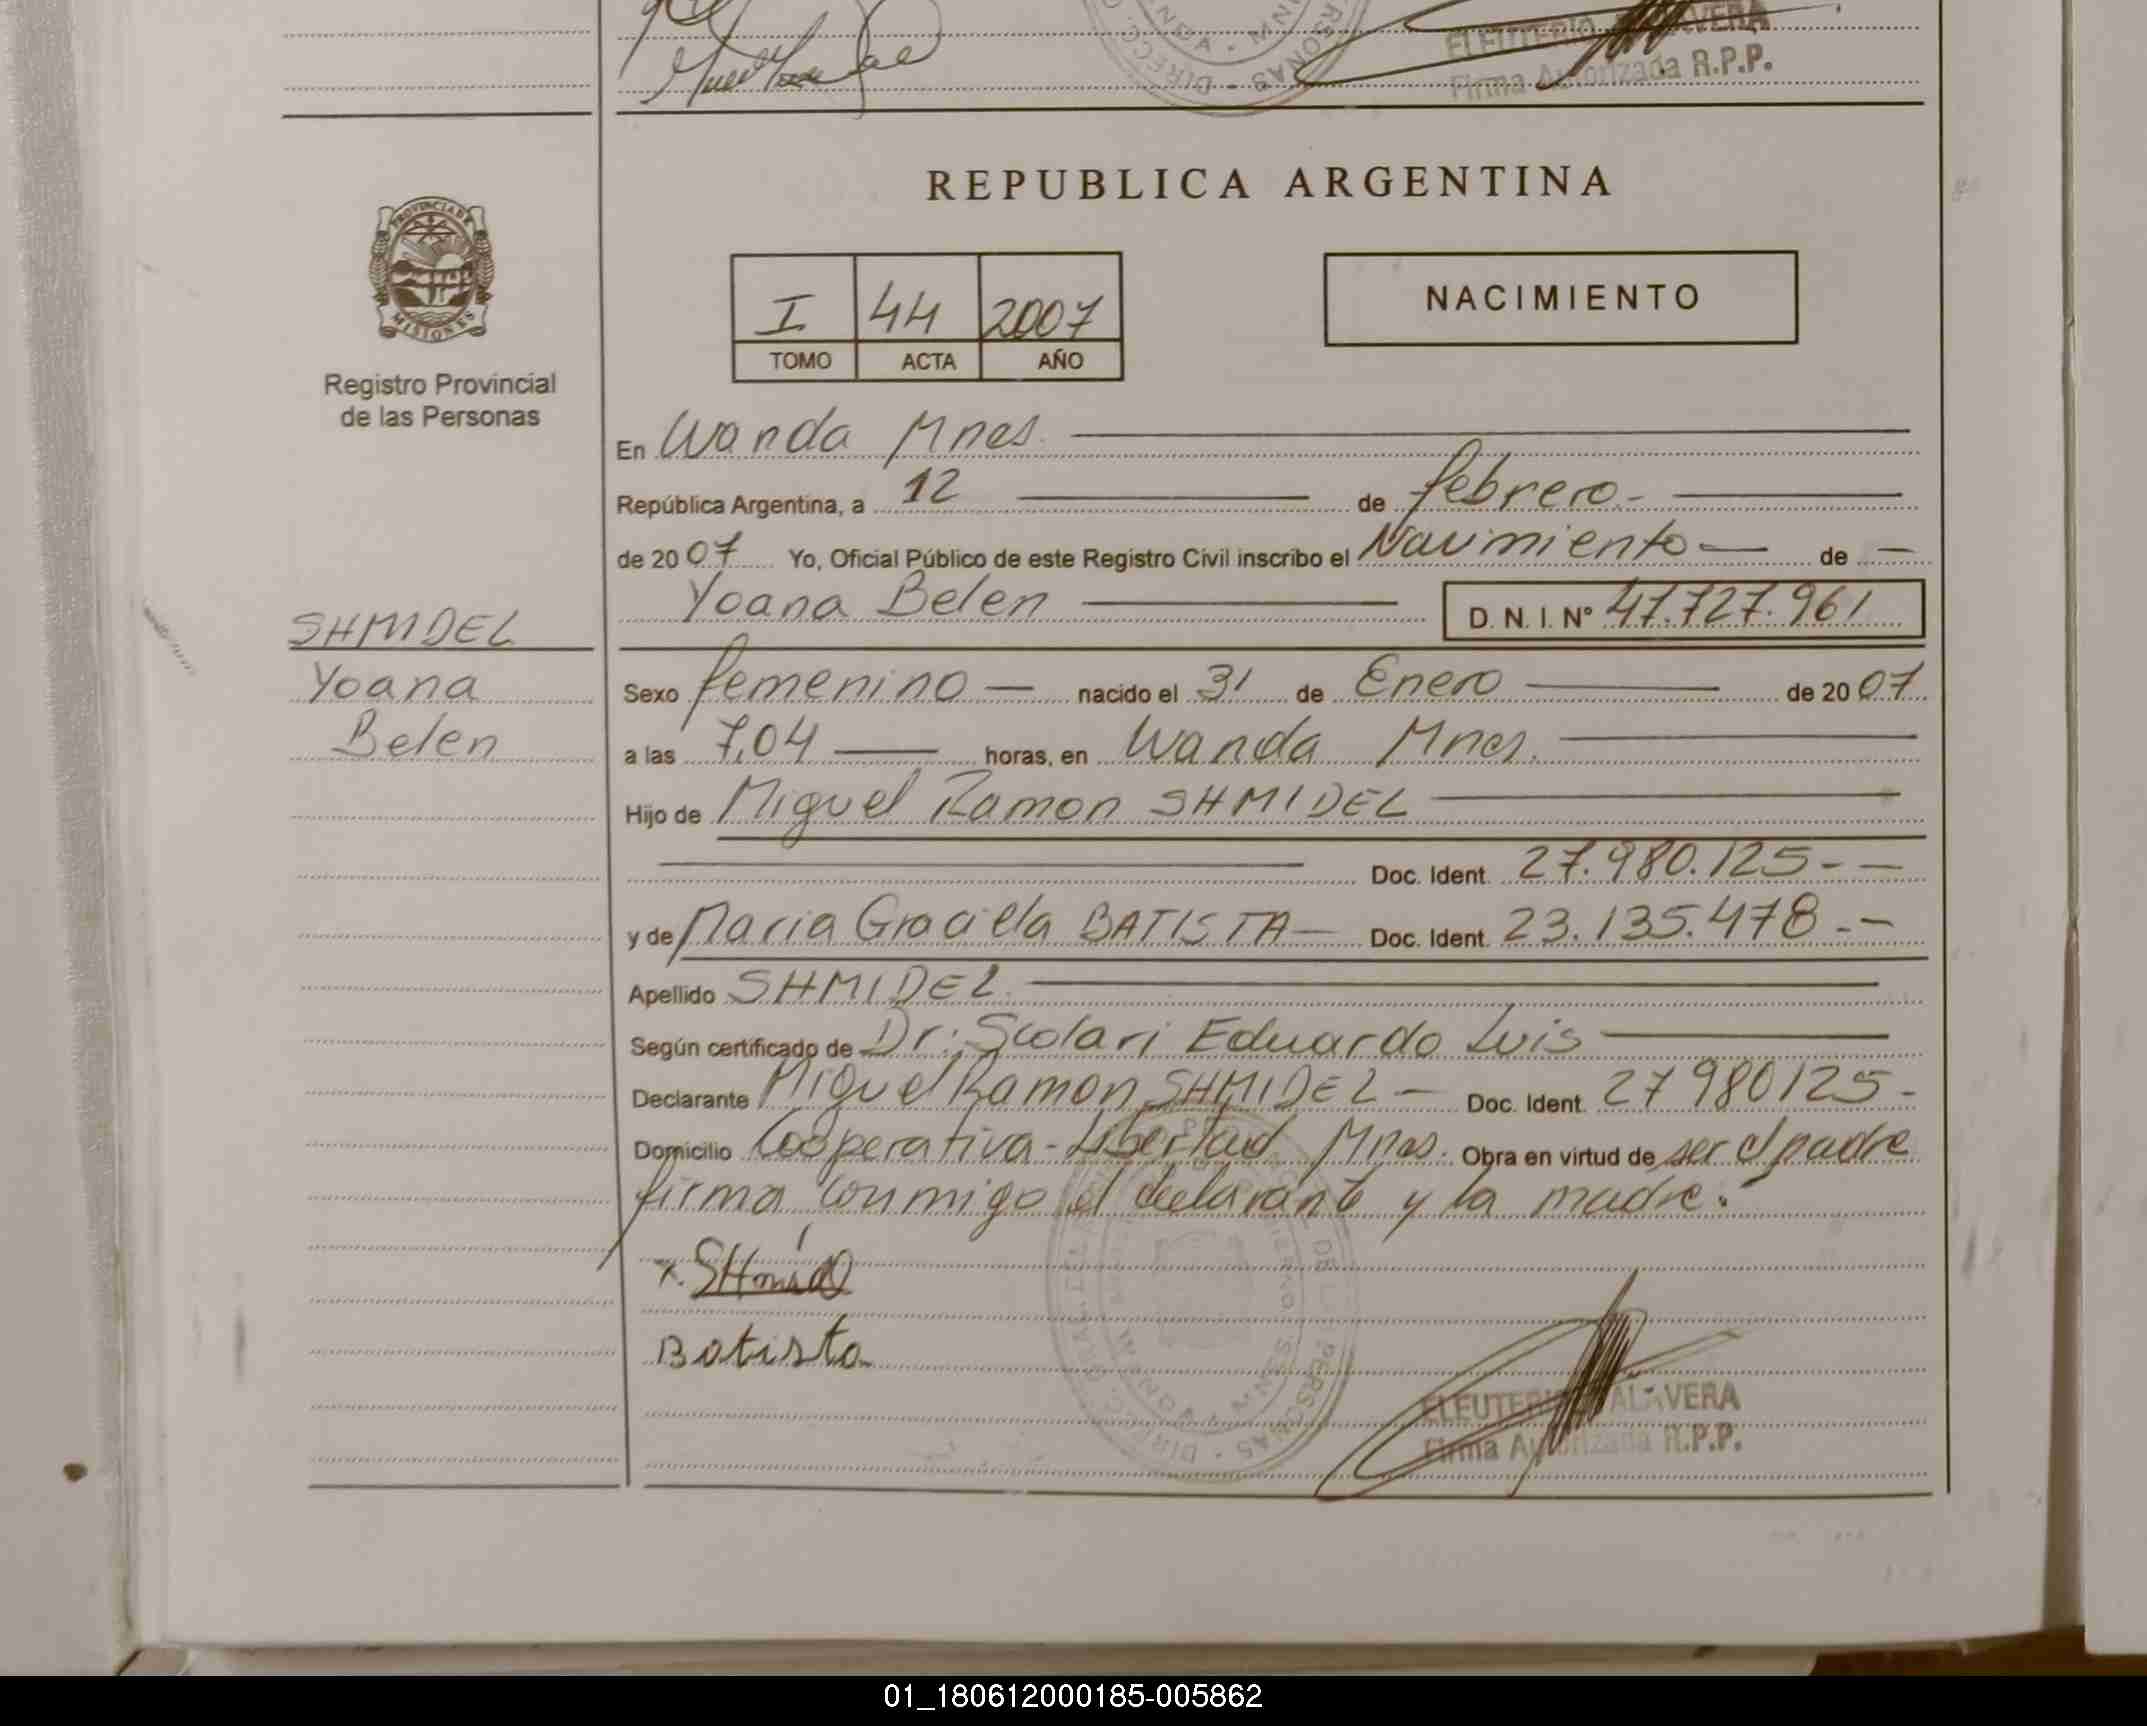 ELEUTERIO TALAVERA
Firma Autorizada R.P.P.
REPUBLICA ARGENTINA
PROVINCIA DE
MISIONES
Registro Provincial
de las Personas
I 44 2007
TOMO ACTA AÑO
NACIMIENTO
En Wanda Mnes.
República Argentina, a 12 de febrero.-
de 2007 Yo, Oficial Público de este Registro Civil inscribo el Nacimiento — de —
Yoana Belen D. N. I. Nº 47.727.961
SHMIDEL
Yoana
Belen
Sexo femenino — nacido el 31 de Enero — de 2007
a las 7,04 — horas, en Wanda Mnes.
Hijo de Miguel Ramon SHMIDEL
Doc. Ident. 27.980.125-—
y de Maria Graciela BATISTA— Doc. Ident. 23.135.478.-—
Apellido SHMIDEL.
Según certificado de Dr: Scolari Eduardo Luis
Declarante Miguel Ramon SHMIDEL — Doc. Ident. 27980125-
Domicilio Cooperativa-Libertad Mnes. Obra en virtud de ser el padre
firma conmigo el declarante y la madre.
x. SHmidel
Batista
ELEUTERIO TALAVERA
Firma Autorizada R.P.P.
01_180612000185-005862